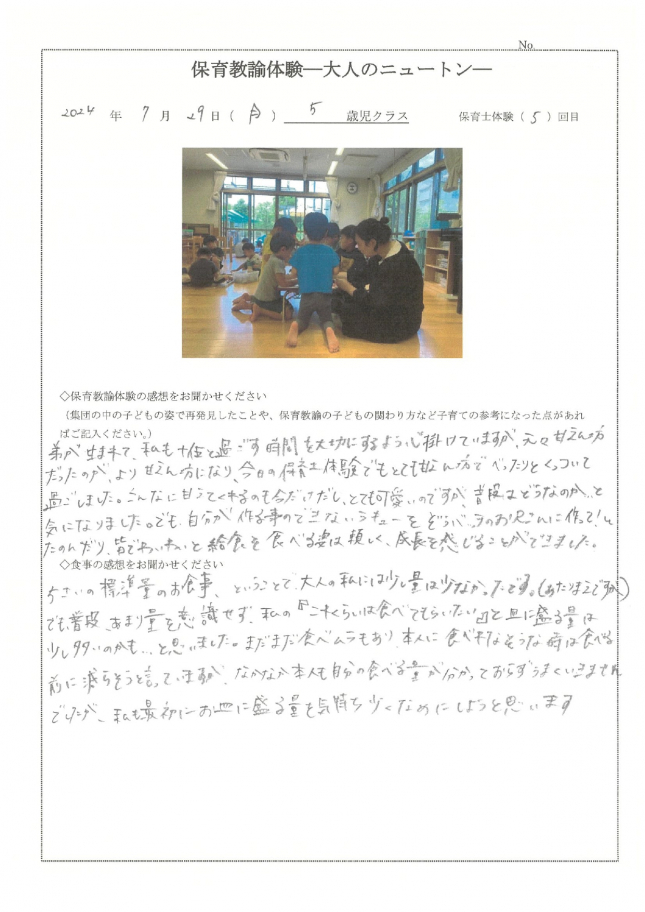 No.
保育教諭体験―大人のニュートン―
2024 年 7 月 29 日（ 月 ） 5 歳児クラス 保育士体験（ 5 ）回目
◇保育教諭体験の感想をお聞かせください
（集団の中の子どもの姿で再発見したことや、保育教諭の子どもの関わり方など子育ての参考になった点があれ
ばご記入ください。）
弟が生まれて、私も と過ごす時間を大切にするよう心掛けていますが、元々甘えん方
だったのが、より甘えん方になり、今日の保育士体験でもとても甘えん方でべったりとくっついて
過ごしました。こんなに甘えてくれるのも今だけだし、とても可愛いのですが、普段はどうなのか、と
気になりました。でも、自分が作る事のできない をぞうバッヂのお兄さんに作って!と
たのんだり、皆でわいわいと給食を食べる姿は頼もしく、成長を感じることができました。
◇食事の感想をお聞かせください
5さいの標準量のお食事、ということで、大人の私には少し量は少なかったです。(あたりまえですが)
でも普段、あまり量を意識せず、私の『これくらいは食べてもらいたい』と皿に盛る量は
少し多いのかも…と思いました。まだまだ食べムラもあり、本人に食べれなそうな時は食べる
前に減らそうと言っていますが、なかなか本人も自分の食べる量が分かっておらずうまくいきません
でしたが、私も最初にお皿に盛る量を気持ち少くなめにしようと思います